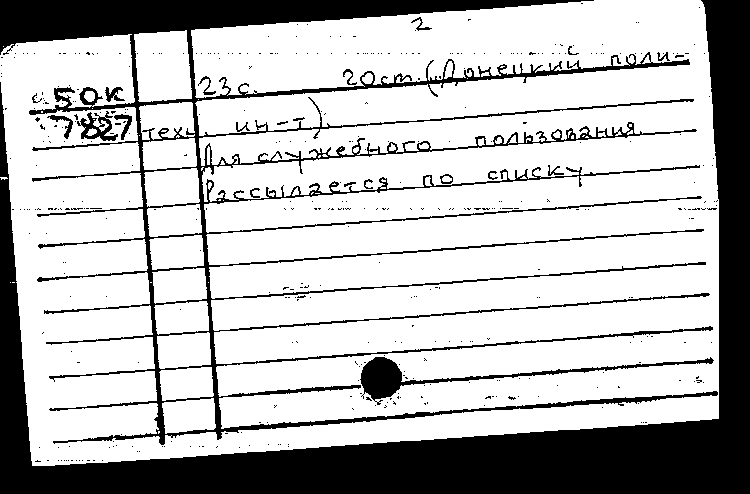 2
50к 23 с. 20 см. (Донецкий поли-
7827 техн. ин-т).
Для служебного пользования
Рассылается по списку.